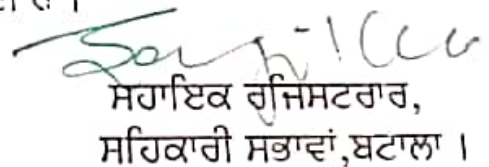 ਸਹਾਇਕ ਰਜਿਸਟਰਾਰ,
ਸਹਿਕਾਰੀ ਸਭਾਵਾਂ,ਬਟਾਲਾ ।